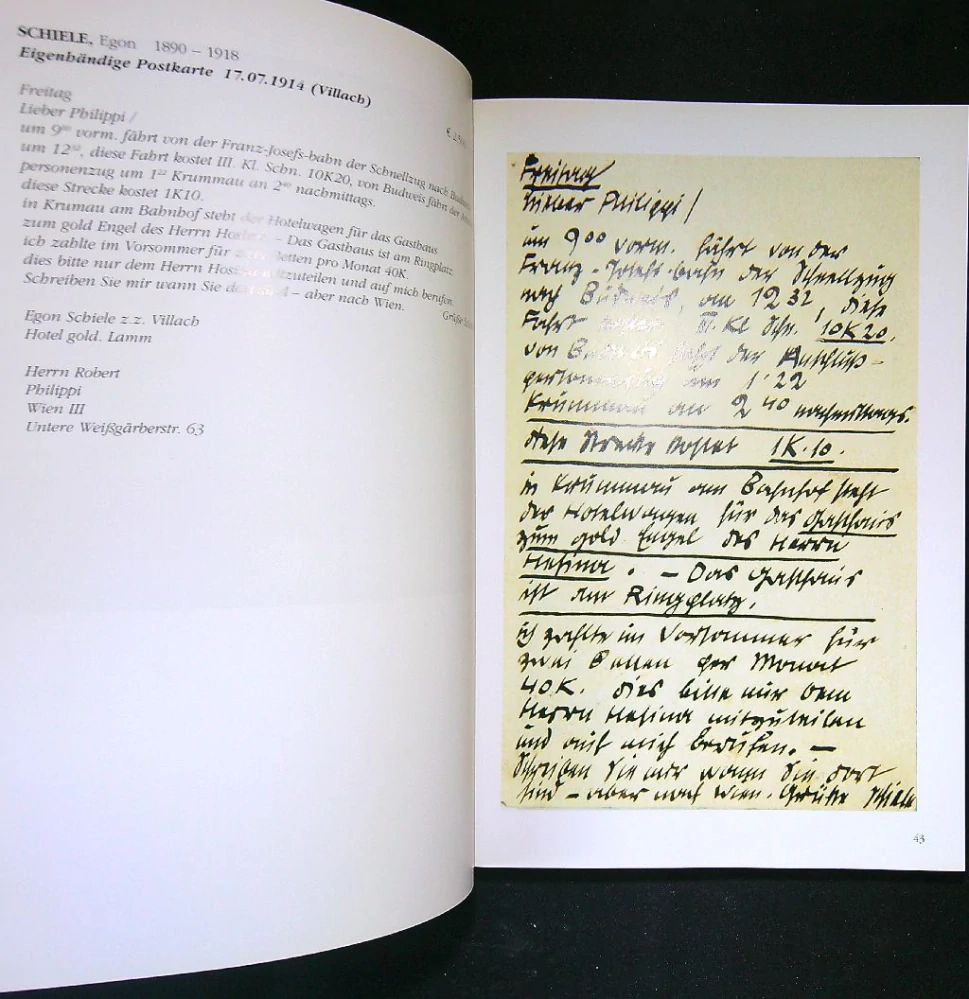 SCHIELE, Egon 1890 – 1918
Eigenhändige Postkarte 17.07.1914 (Villach)
Freitag
Lieber Philippi /
€
um 9⁰⁰ vorm. fährt von der Franz-Josefs-bahn der Schnellzug nach
um 12³², diese Fahrt kostet III. Kl. Schn. 10K20, von Budweis fährt der
personenzug um 1²² Krummau an 2⁴⁰ nachmittags.
diese Strecke kostet 1K10.
in Krumau am Bahnhof steht der Hotelwagen für das Gasthaus
zum gold Engel des Herrn – Das Gasthaus ist am Ringplatz
ich zahlte im Vorsommer für Betten pro Monat 40K.
dies bitte nur dem Herrn und auf mich berufen.
Schreiben Sie mir wann Sie – aber nach Wien.
Egon Schiele z.z. Villach
Hotel gold. Lamm
Herrn Robert
Philippi
Wien III
Untere Weißgärberstr. 63
Freitag
Lieber Philippi /
um 9⁰⁰ vorm. fährt von der
Franz-Josefs-bahn der Schnellzug
nach Budweis, um 12 32, diese
Fahrt kostet III. Kl Schn. 10K20,
von fährt der Anschluß-
personenzug um 1·22
Krummau an 2⁴⁰ nachmittags.
diese Strecke kostet 1K·10.
in Krummau am Bahnhof steht
der Hotelwagen für das Gasthaus
zum gold Engel des Herrn
Hesina. – Das Gasthaus
ist am Ringplatz.
ich zahlte im Vorsommer für
zwei Betten per Monat
40K. dies bitte nur dem
Herrn Hesina mitzuteilen
und auf mich berufen. –
Schreiben Sie mir wann Sie dort
sind – aber nach Wien. Grüße Schiele
43